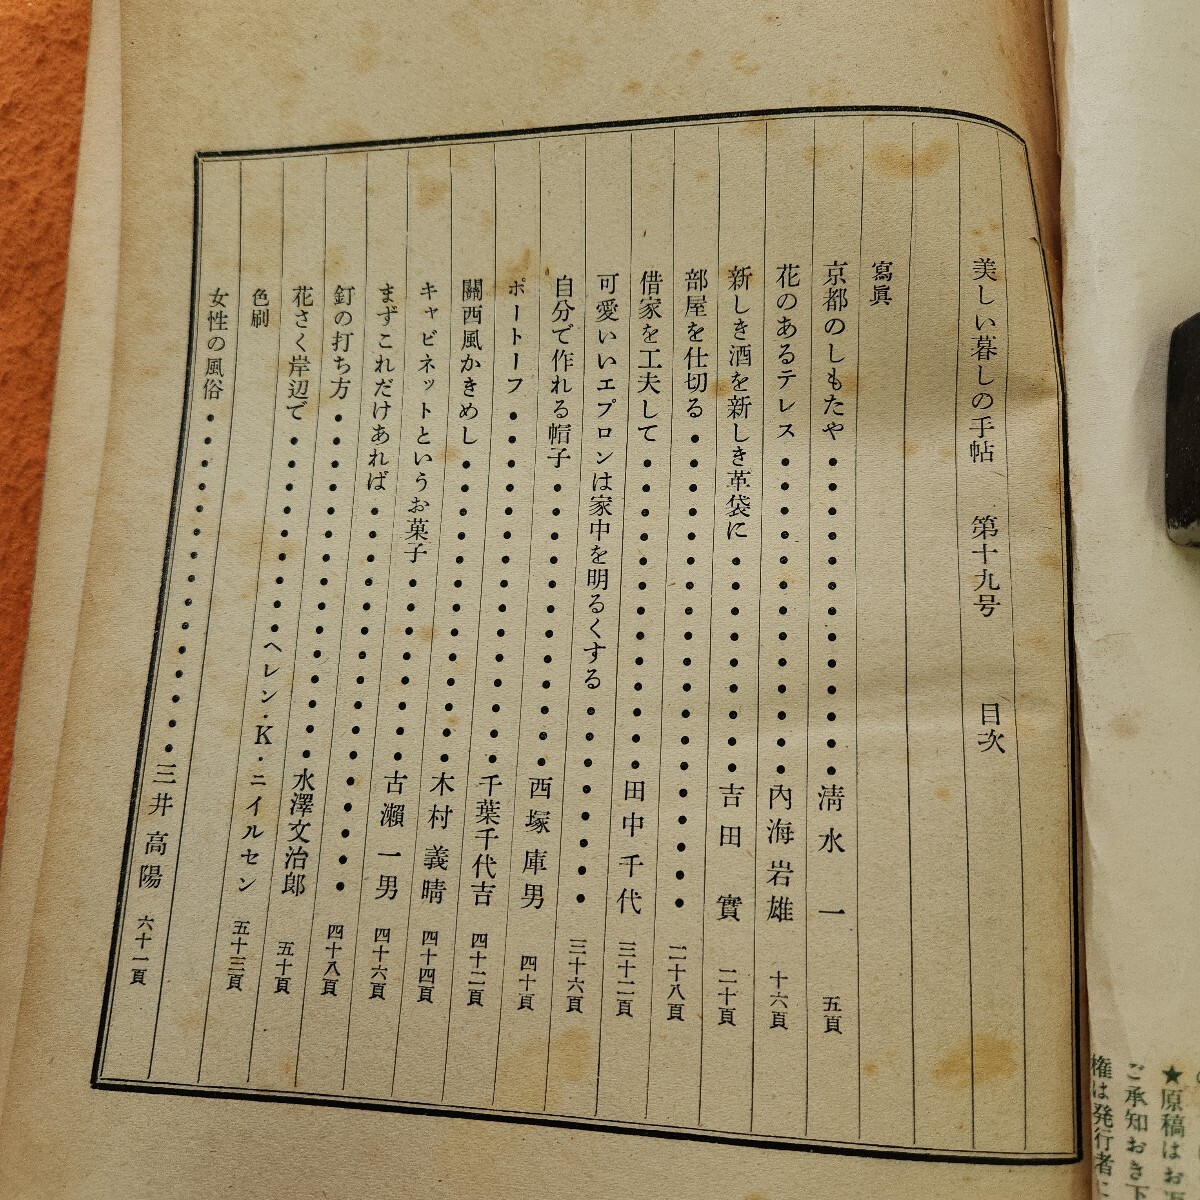 美しい暮しの手帖　第十九号　目次
寫眞
京都のしもたや・・・・・・・・・・・・・清水一　五頁
花のあるテレス・・・・・・・・・・・・・内海岩雄　十六頁
新しき酒を新しき革袋に・・・・・・・・・吉田實　二十頁
部屋を仕切る・・・・・・・・・・・・・・・・・・・二十八頁
借家を工夫して・・・・・・・・・・・・・田中千代　三十二頁
可愛いいエプロンは家中を明るくする・・・・・・・・三十六頁
自分で作れる帽子・・・・・・・・・・・・西塚庫男　四十頁
ポートーフ・・・・・・・・・・・・・・・千葉千代吉　四十二頁
關西風かきめし・・・・・・・・・・・・・木村義晴　四十四頁
キャビネットというお菓子・・・・・・・・古瀨一男　四十六頁
まずこれだけあれば・・・・・・・・・・・・・・・・四十八頁
釘の打ち方・・・・・・・・・・・・・・・水澤文治郎　五十頁
花さく岸辺で・・・・・・・・・ヘレン・K・ニイルセン　五十三頁
色刷
女性の風俗・・・・・・・・・・・・・・・三井高陽　六十一頁
★原稿はお
ご承知おき下
権は発行者に